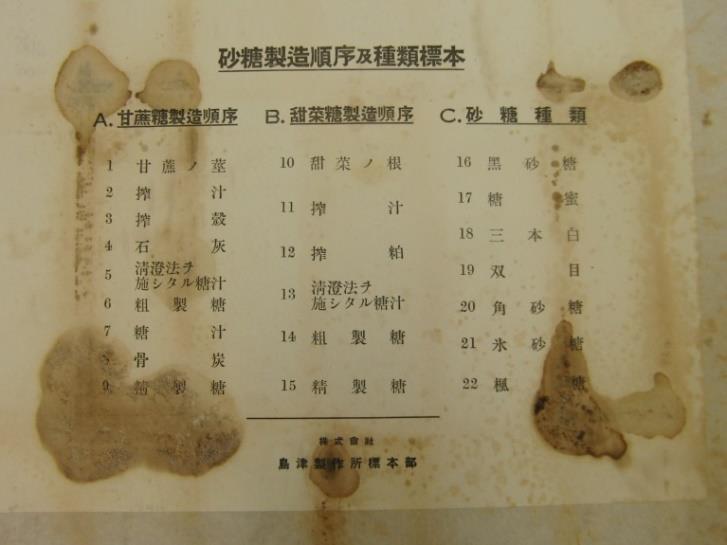 砂糖製造順序及種類標本
A. 甘蔗糖製造順序
1 甘蔗ノ莖
2 搾汁
3 搾殻
4 石灰
5 淸澄法ヲ施シタル糖汁
6 粗製糖
7 糖汁
8 骨炭
9 精製糖
B. 甜菜糖製造順序
10 甜菜ノ根
11 搾汁
12 搾粕
13 淸澄法ヲ施シタル糖汁
14 粗製糖
15 精製糖
C. 砂糖種類
16 黑砂糖
17 糖蜜
18 三本白
19 双目
20 角砂糖
21 氷砂糖
22 楓糖
株式會社
島津製作所標本部